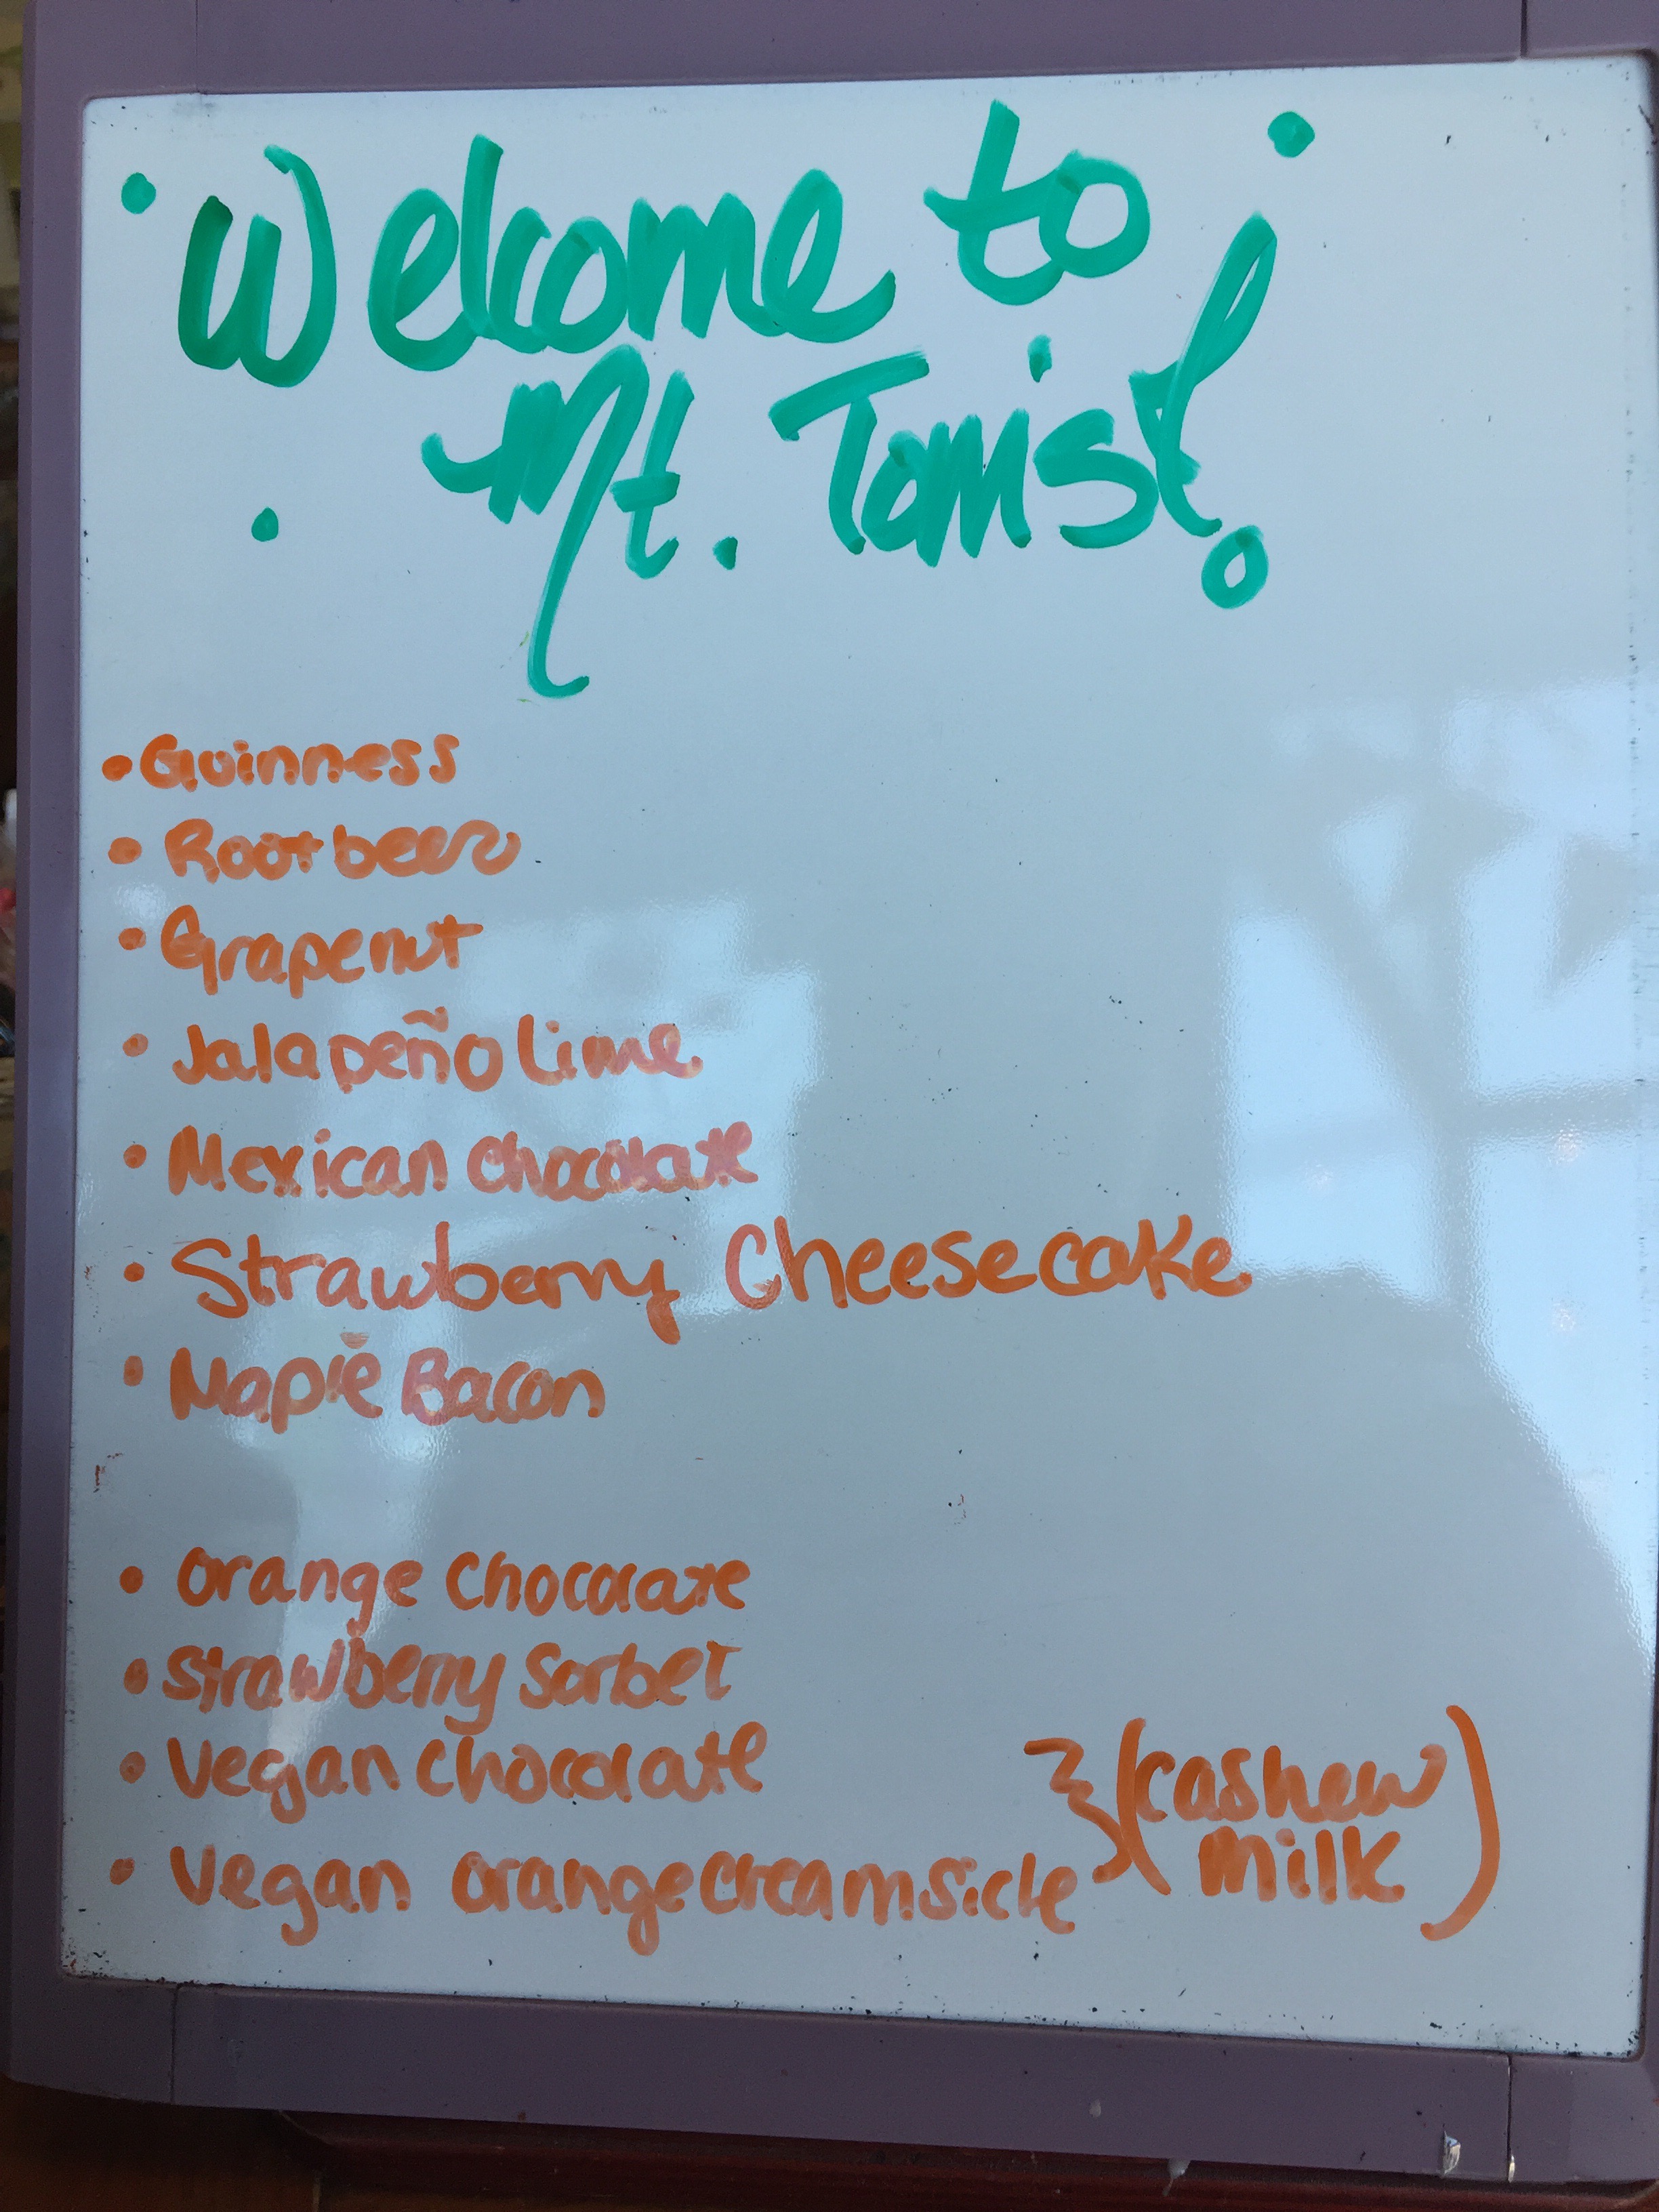 Welcome to
Mt. Tom's!
• Guinness
• Rootbeer
• Grapenut
• Jalapeño Lime
• Mexican Chocolate
• Strawberry Cheesecake
• Maple Bacon
• Orange Chocolate
• Strawberry Sorbet
• Vegan Chocolate
• Vegan orange creamsicle
(cashew
milk)